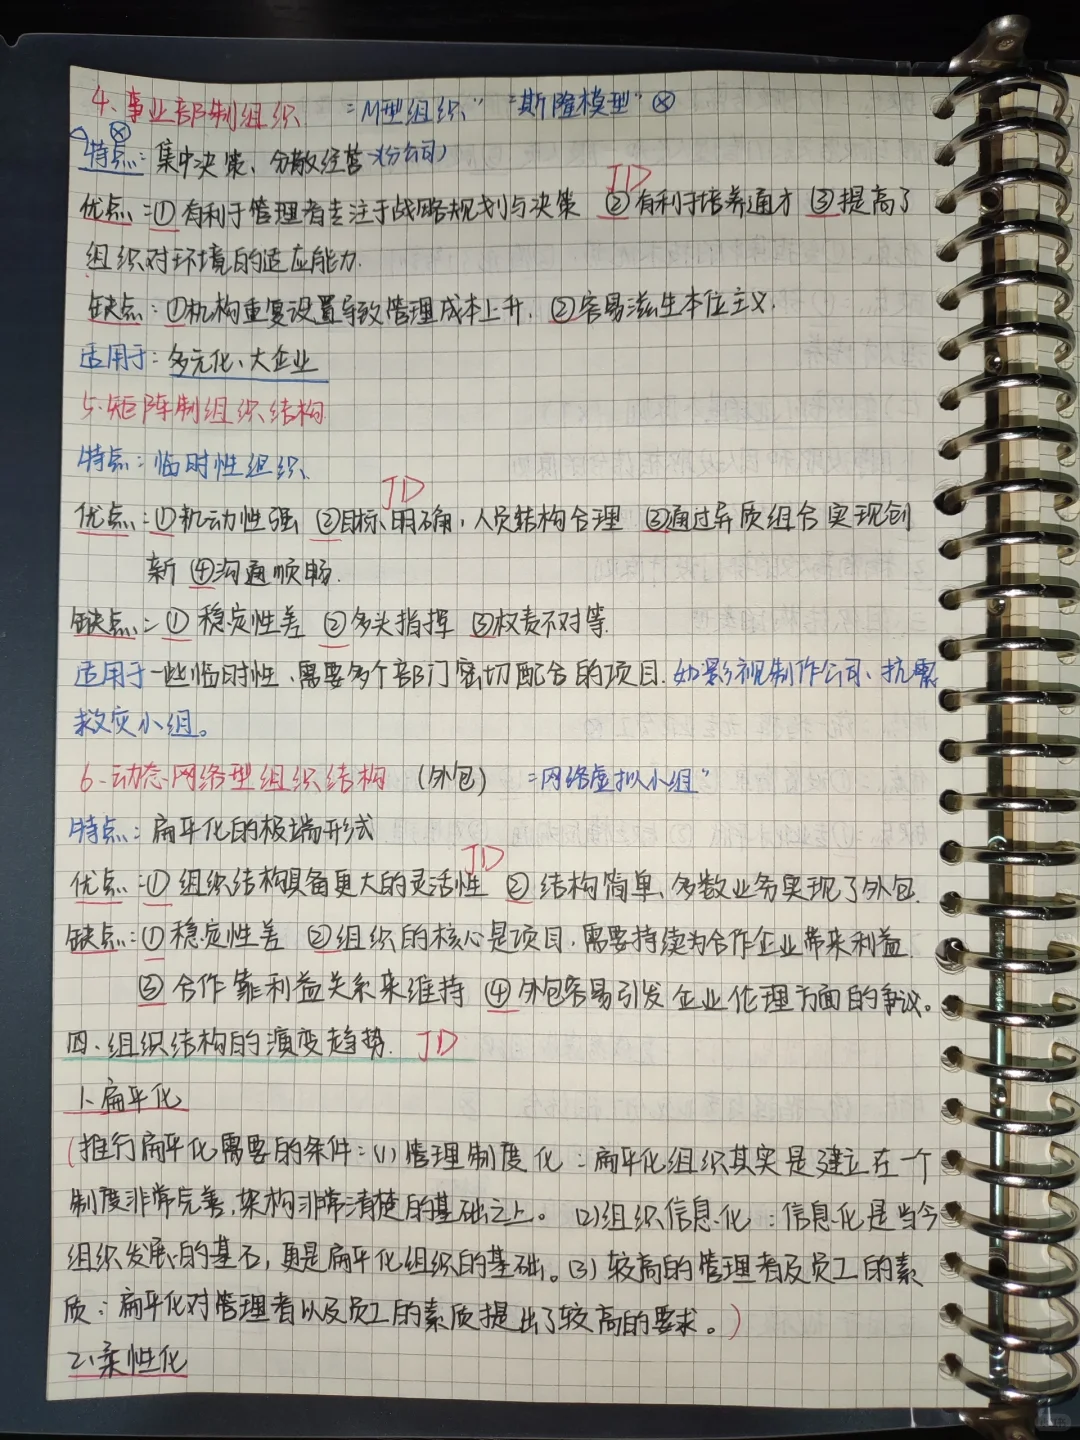 4、事业部制组织 "M型组织" "斯隆模型" ⊗
⊗
特点：集中决策、分散经营（分公司）
JD
优点：①有利于管理者专注于战略规划与决策 ②有利于培养通才 ③提高了
组织对环境的适应能力.
缺点：①机构重复设置导致管理成本上升. ②容易滋生本位主义.
适用于：多元化、大企业
5.矩阵制组织结构
特点：临时性组织、
JD
优点：①机动性强 ②目标明确，人员结构合理 ③通过异质组合实现创
新 ④沟通顺畅.
缺点：① 稳定性差 ②多头指挥 ③权责不对等.
适用于一些临时性、需要多个部门密切配合的项目.如影视制作公司、抗震
救灾小组。
6.动态网络型组织结构 （外包） "网络虚拟小组"
特点：扁平化的极端形式
JD
优点：① 组织结构具备更大的灵活性 ② 结构简单、多数业务实现了外包.
缺点：① 稳定性差 ②组织的核心是项目，需要持续为合作企业带来利益.
③ 合作靠利益关系来维持 ④ 外包容易引发企业伦理方面的争议。
四、组织结构的演变趋势. JD
1、扁平化
（推行扁平化需要的条件：(1) 管理制度化：扁平化组织其实是建立在一个
制度非常完善，架构非常清楚的基础之上。(2)组织信息化：信息化是当今
组织发展的基石，更是扁平化组织的基础。(3) 较高的管理者及员工的素
质：扁平化对管理者以及员工的素质提出了较高的要求。）
2、柔性化